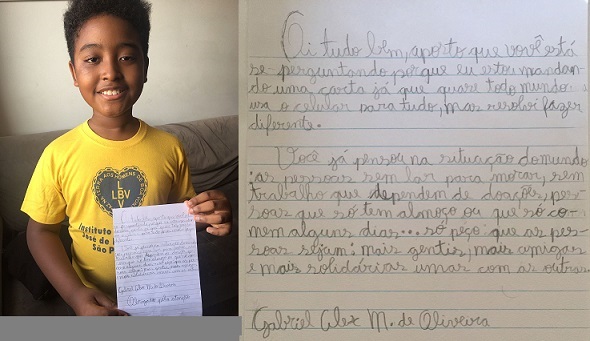 LBV
Instituto
José de
São P
Gabriel Alex M. de Oliveira
Obrigado pela atenção
Oi tudo bem, aposto que você está
se perguntando porque eu estou mandan-
do uma carta já que quase todo mundo
usa o celular para tudo, mas resolvi fazer
diferente.
Você já pensou na situação do mundo
:as pessoas sem lar para morar, sem
trabalho que dependem de doações, pes-
soas que só tem almoço ou que só co-
mem alguns dias... só peço que as pes-
soas sejam: mais gentis, mais amigas
e mais solidárias umas com as outras
Gabriel Alex M. de Oliveira